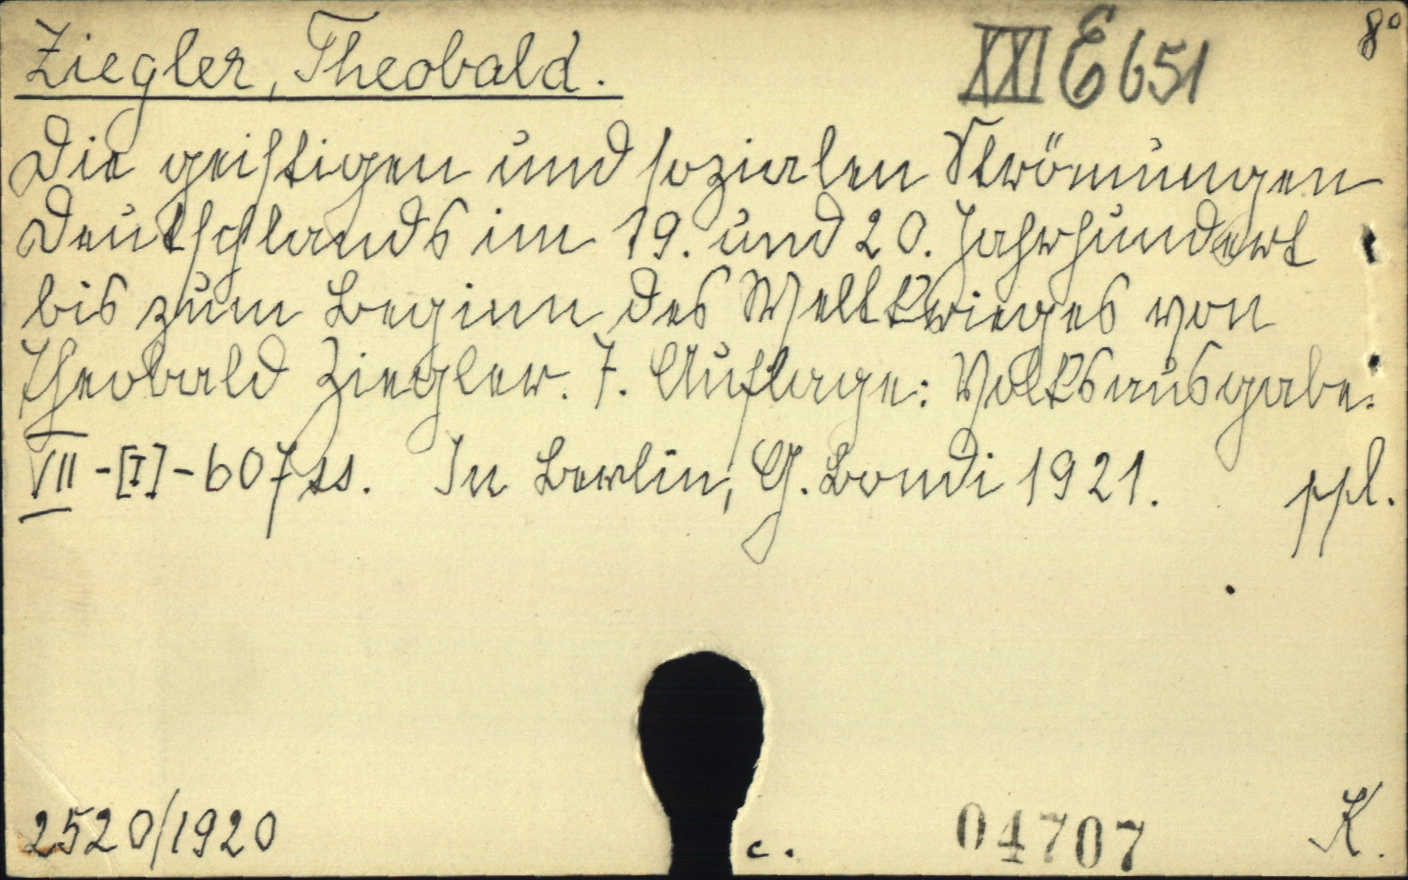 Ziegler, Theobald. XXI E 651 8°
Die geistigen und sozialen Strömungen
Deutschlands im 19. und 20. Jahrhundert
bis zum Beginn des Weltkrieges von
Theobald Ziegler. 7. Auflage: Volksausgabe.
VII - [I] - 607 ss. In Berlin, G. Bondi 1921. ppl.
2520/1920 c. 04707 K.